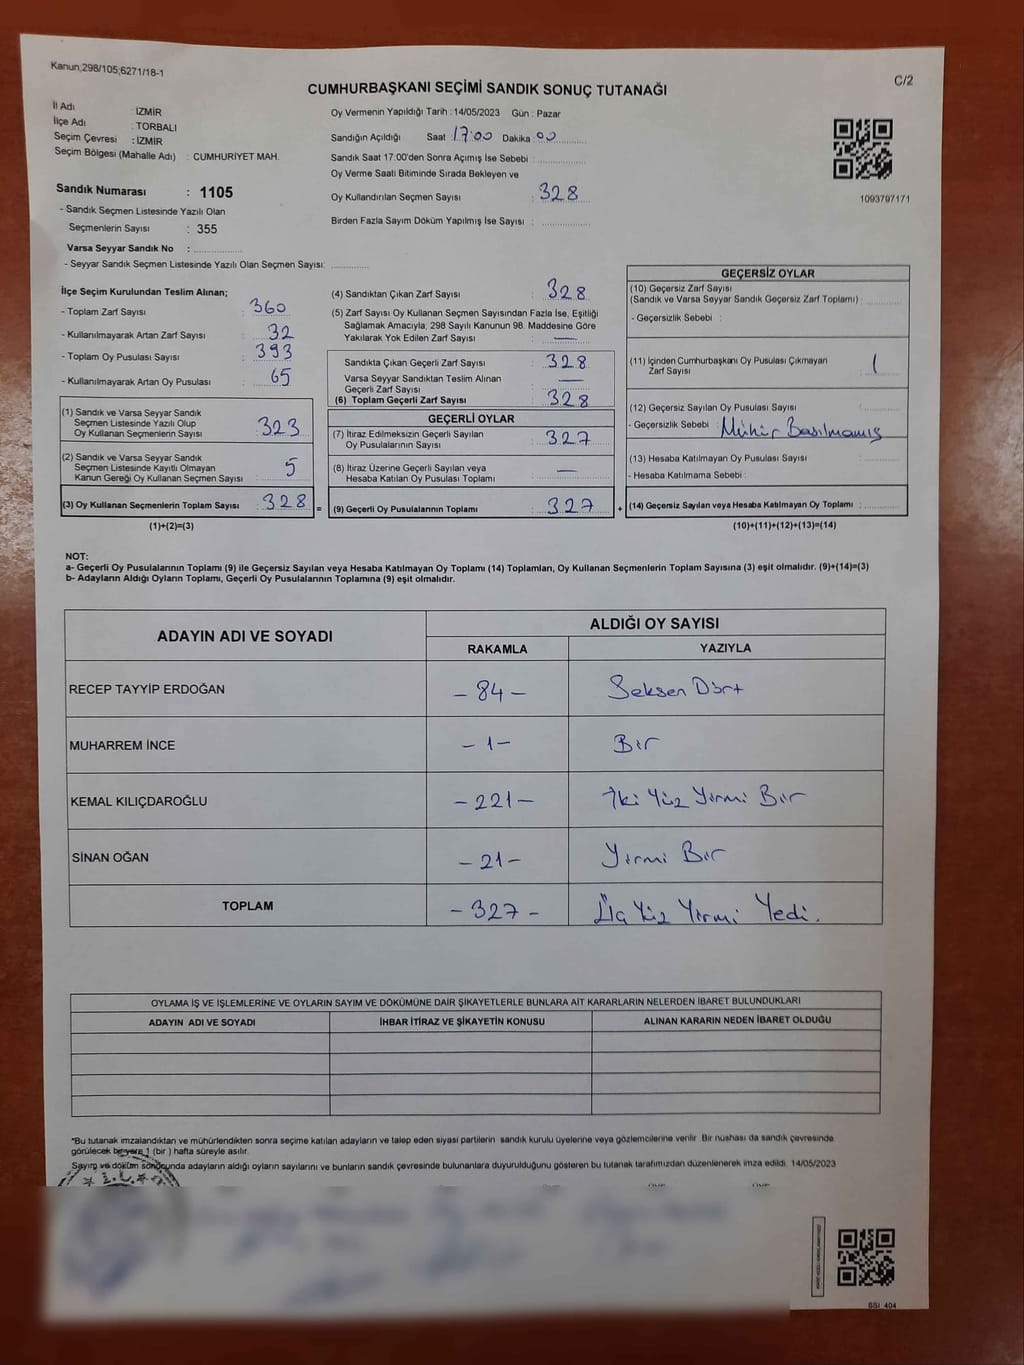 Kanun;298/105;6271/18-1
C/2
CUMHURBAŞKANI SEÇİMİ SANDIK SONUÇ TUTANAĞI
İl Adı : İZMİR
İlçe Adı : TORBALI
Seçim Çevresi : İZMİR
Seçim Bölgesi (Mahalle Adı) : CUMHURİYET MAH.
Sandık Numarası : 1105
- Sandık Seçmen Listesinde Yazılı Olan
Seçmenlerin Sayısı : 355
Varsa Seyyar Sandık No :
- Seyyar Sandık Seçmen Listesinde Yazılı Olan Seçmen Sayısı:
Oy Vermenin Yapıldığı Tarih : 14/05/2023 Gün : Pazar
Sandığın Açıldığı Saat : 17:00 Dakika 00
Sandık Saat 17:00'den Sonra Açımış İse Sebebi :
Oy Verme Saati Bitiminde Sırada Bekleyen ve
Oy Kullandırılan Seçmen Sayısı : 328
Birden Fazla Sayım Döküm Yapılmış İse Sayısı :
1093797171
İlçe Seçim Kurulundan Teslim Alınan;
- Toplam Zarf Sayısı : 360
- Kullanılmayarak Artan Zarf Sayısı : 32
- Toplam Oy Pusulası Sayısı : 393
- Kullanılmayarak Artan Oy Pusulası : 65
(1) Sandık ve Varsa Seyyar Sandık
Seçmen Listesinde Yazılı Olup
Oy Kullanan Seçmenlerin Sayısı : 323
(2) Sandık ve Varsa Seyyar Sandık
Seçmen Listesinde Kayıtlı Olmayan
Kanun Gereği Oy Kullanan Seçmen Sayısı : 5
(3) Oy Kullanan Seçmenlerin Toplam Sayısı : 328
(1)+(2)=(3)
(4) Sandıktan Çıkan Zarf Sayısı : 328
(5) Zarf Sayısı Oy Kullanan Seçmen Sayısından Fazla İse, Eşitliği
Sağlamak Amacıyla, 298 Sayılı Kanunun 98. Maddesine Göre
Yakılarak Yok Edilen Zarf Sayısı : —
Sandıkta Çıkan Geçerli Zarf Sayısı : 328
Varsa Seyyar Sandıktan Teslim Alınan
Geçerli Zarf Sayısı : —
(6) Toplam Geçerli Zarf Sayısı : 328
GEÇERLİ OYLAR
(7) İtiraz Edilmeksizin Geçerli Sayılan
Oy Pusulalarının Sayısı : 327
(8) İtiraz Üzerine Geçerli Sayılan veya
Hesaba Katılan Oy Pusulası Toplamı : —
= (9) Geçerli Oy Pusulalarının Toplamı : 327 +
GEÇERSİZ OYLAR
(10) Geçersiz Zarf Sayısı
(Sandık ve Varsa Seyyar Sandık Geçersiz Zarf Toplamı) :
- Geçersizlik Sebebi :
(11) İçinden Cumhurbaşkanı Oy Pusulası Çıkmayan
Zarf Sayısı : 1
(12) Geçersiz Sayılan Oy Pusulası Sayısı :
- Geçersizlik Sebebi : Mühür Basılmamış
(13) Hesaba Katılmayan Oy Pusulası Sayısı :
- Hesaba Katılmama Sebebi :
(14) Geçersiz Sayılan veya Hesaba Katılmayan Oy Toplamı :
(10)+(11)+(12)+(13)=(14)
NOT:
a- Geçerli Oy Pusulalarının Toplamı (9) ile Geçersiz Sayılan veya Hesaba Katılmayan Oy Toplamı (14) Toplamları, Oy Kullanan Seçmenlerin Toplam Sayısına (3) eşit olmalıdır. (9)+(14)=(3)
b- Adayların Aldığı Oyların Toplamı, Geçerli Oy Pusulalarının Toplamına (9) eşit olmalıdır.
ADAYIN ADI VE SOYADI ALDIĞI OY SAYISI
RAKAMLA YAZIYLA
RECEP TAYYİP ERDOĞAN - 84 - Seksen Dört
MUHARREM İNCE - 1 - Bir
KEMAL KILIÇDAROĞLU - 221 - İki Yüz Yirmi Bir
SİNAN OĞAN - 21 - Yirmi Bir
TOPLAM - 327 - Üç Yüz Yirmi Yedi.
OYLAMA İŞ VE İŞLEMLERİNE VE OYLARIN SAYIM VE DÖKÜMÜNE DAİR ŞİKAYETLERLE BUNLARA AİT KARARLARIN NELERDEN İBARET BULUNDUKLARI
ADAYIN ADI VE SOYADI İHBAR İTİRAZ VE ŞİKAYETİN KONUSU ALINAN KARARIN NEDEN İBARET OLDUĞU
*Bu tutanak imzalandıktan ve mühürlendikten sonra seçime katılan adayların ve talep eden siyasi partilerin sandık kurulu üyelerine veya gözlemcilerine verilir. Bir nushası da sandık çevresinde
görülecek bir yere 1 (bir ) hafta süreyle asılır.
Sayım ve döküm sonucunda adayların aldığı oyların sayılarını ve bunların sandık çevresinde bulunanlara duyurulduğunu gösteren bu tutanak tarafımızdan düzenlenerek imza edildi. 14/05/2023
BSI 404